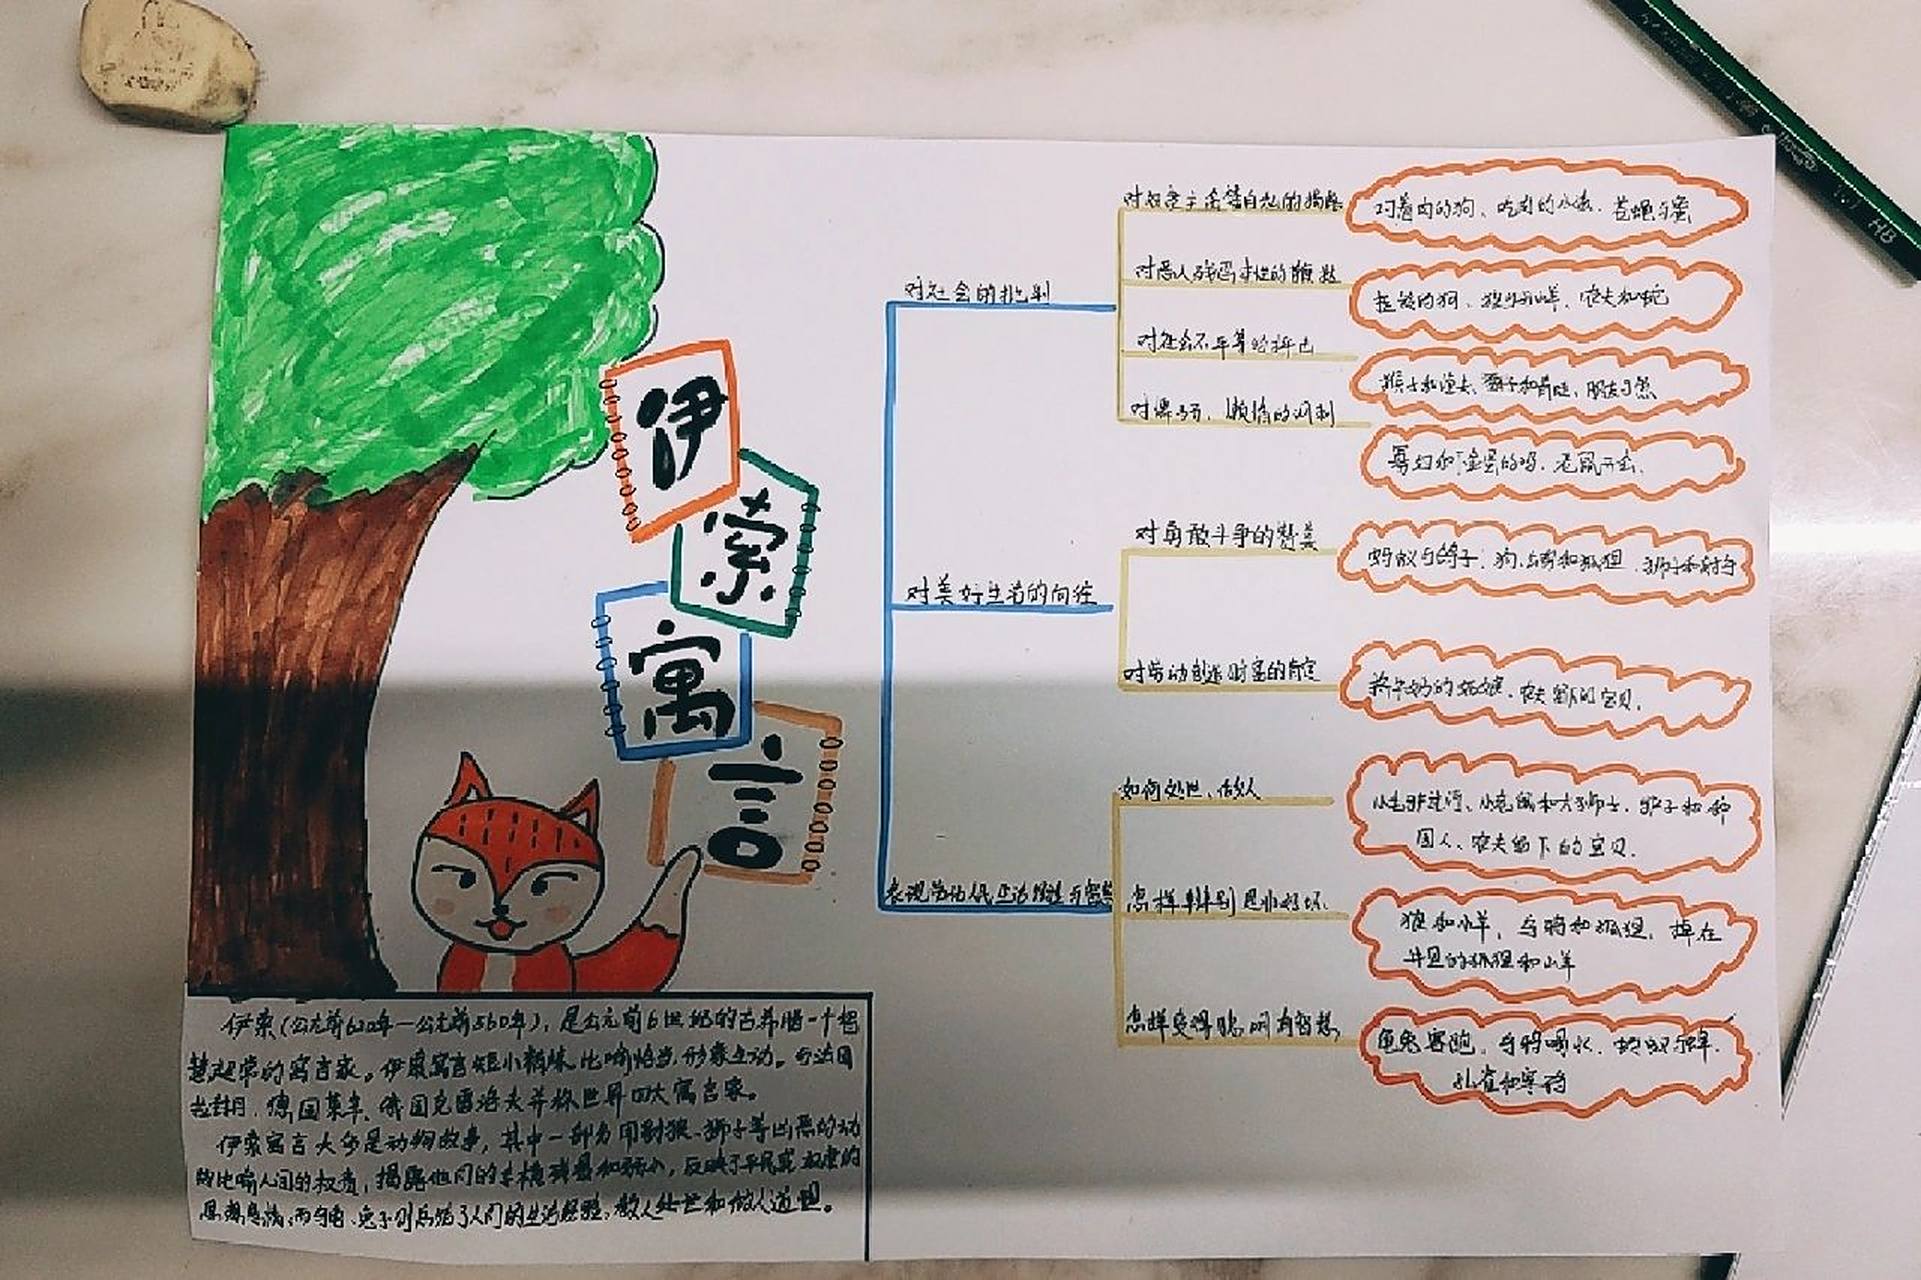 伊
索
寓
言
对社会的批判
对奴隶主贪婪自私的揭露
叼着肉的狗、吃肉的小孩、苍蝇与蜜
对恶人残酷本性的鞭挞
农夫和蛇
对社会不平等的抨击
对懒惰的讽刺
金蛋的鸡、老鼠开会
对美好生活的向往
对勇敢斗争的赞美
蚂蚁与鸽子、狗、公鸡和狐狸、狮子和射手
对劳动创造财富的肯定
挤牛奶的姑娘、农夫留下的宝贝。
表现劳动人民生活经验与智慧
如何处世、做人
小老鼠和大狮子、
农夫留下的宝贝。
怎样辨别是非好坏
狼和小羊，乌鸦和狐狸，掉在
井里的狐狸和山羊
怎样变得聪明有智慧
龟兔赛跑、乌鸦喝水、
孔雀和寒鸦
伊索(公元前620年—公元前560年)，是公元前6世纪的古希腊一个智
慧超常的寓言家。伊索寓言短小精悍，比喻恰当，形象生动。与法国
拉封丹、德国莱辛、俄国克雷洛夫并称世界四大寓言家。
伊索寓言大多是动物故事，其中一部分用豺狼、狮子等凶恶的动
物比喻人间的权贵，揭露他们的专横残暴和弱小，反映了平民或奴隶的
思想感情；而乌龟、兔子则总结了人们的生活经验，教人处世和做人道理。
HB